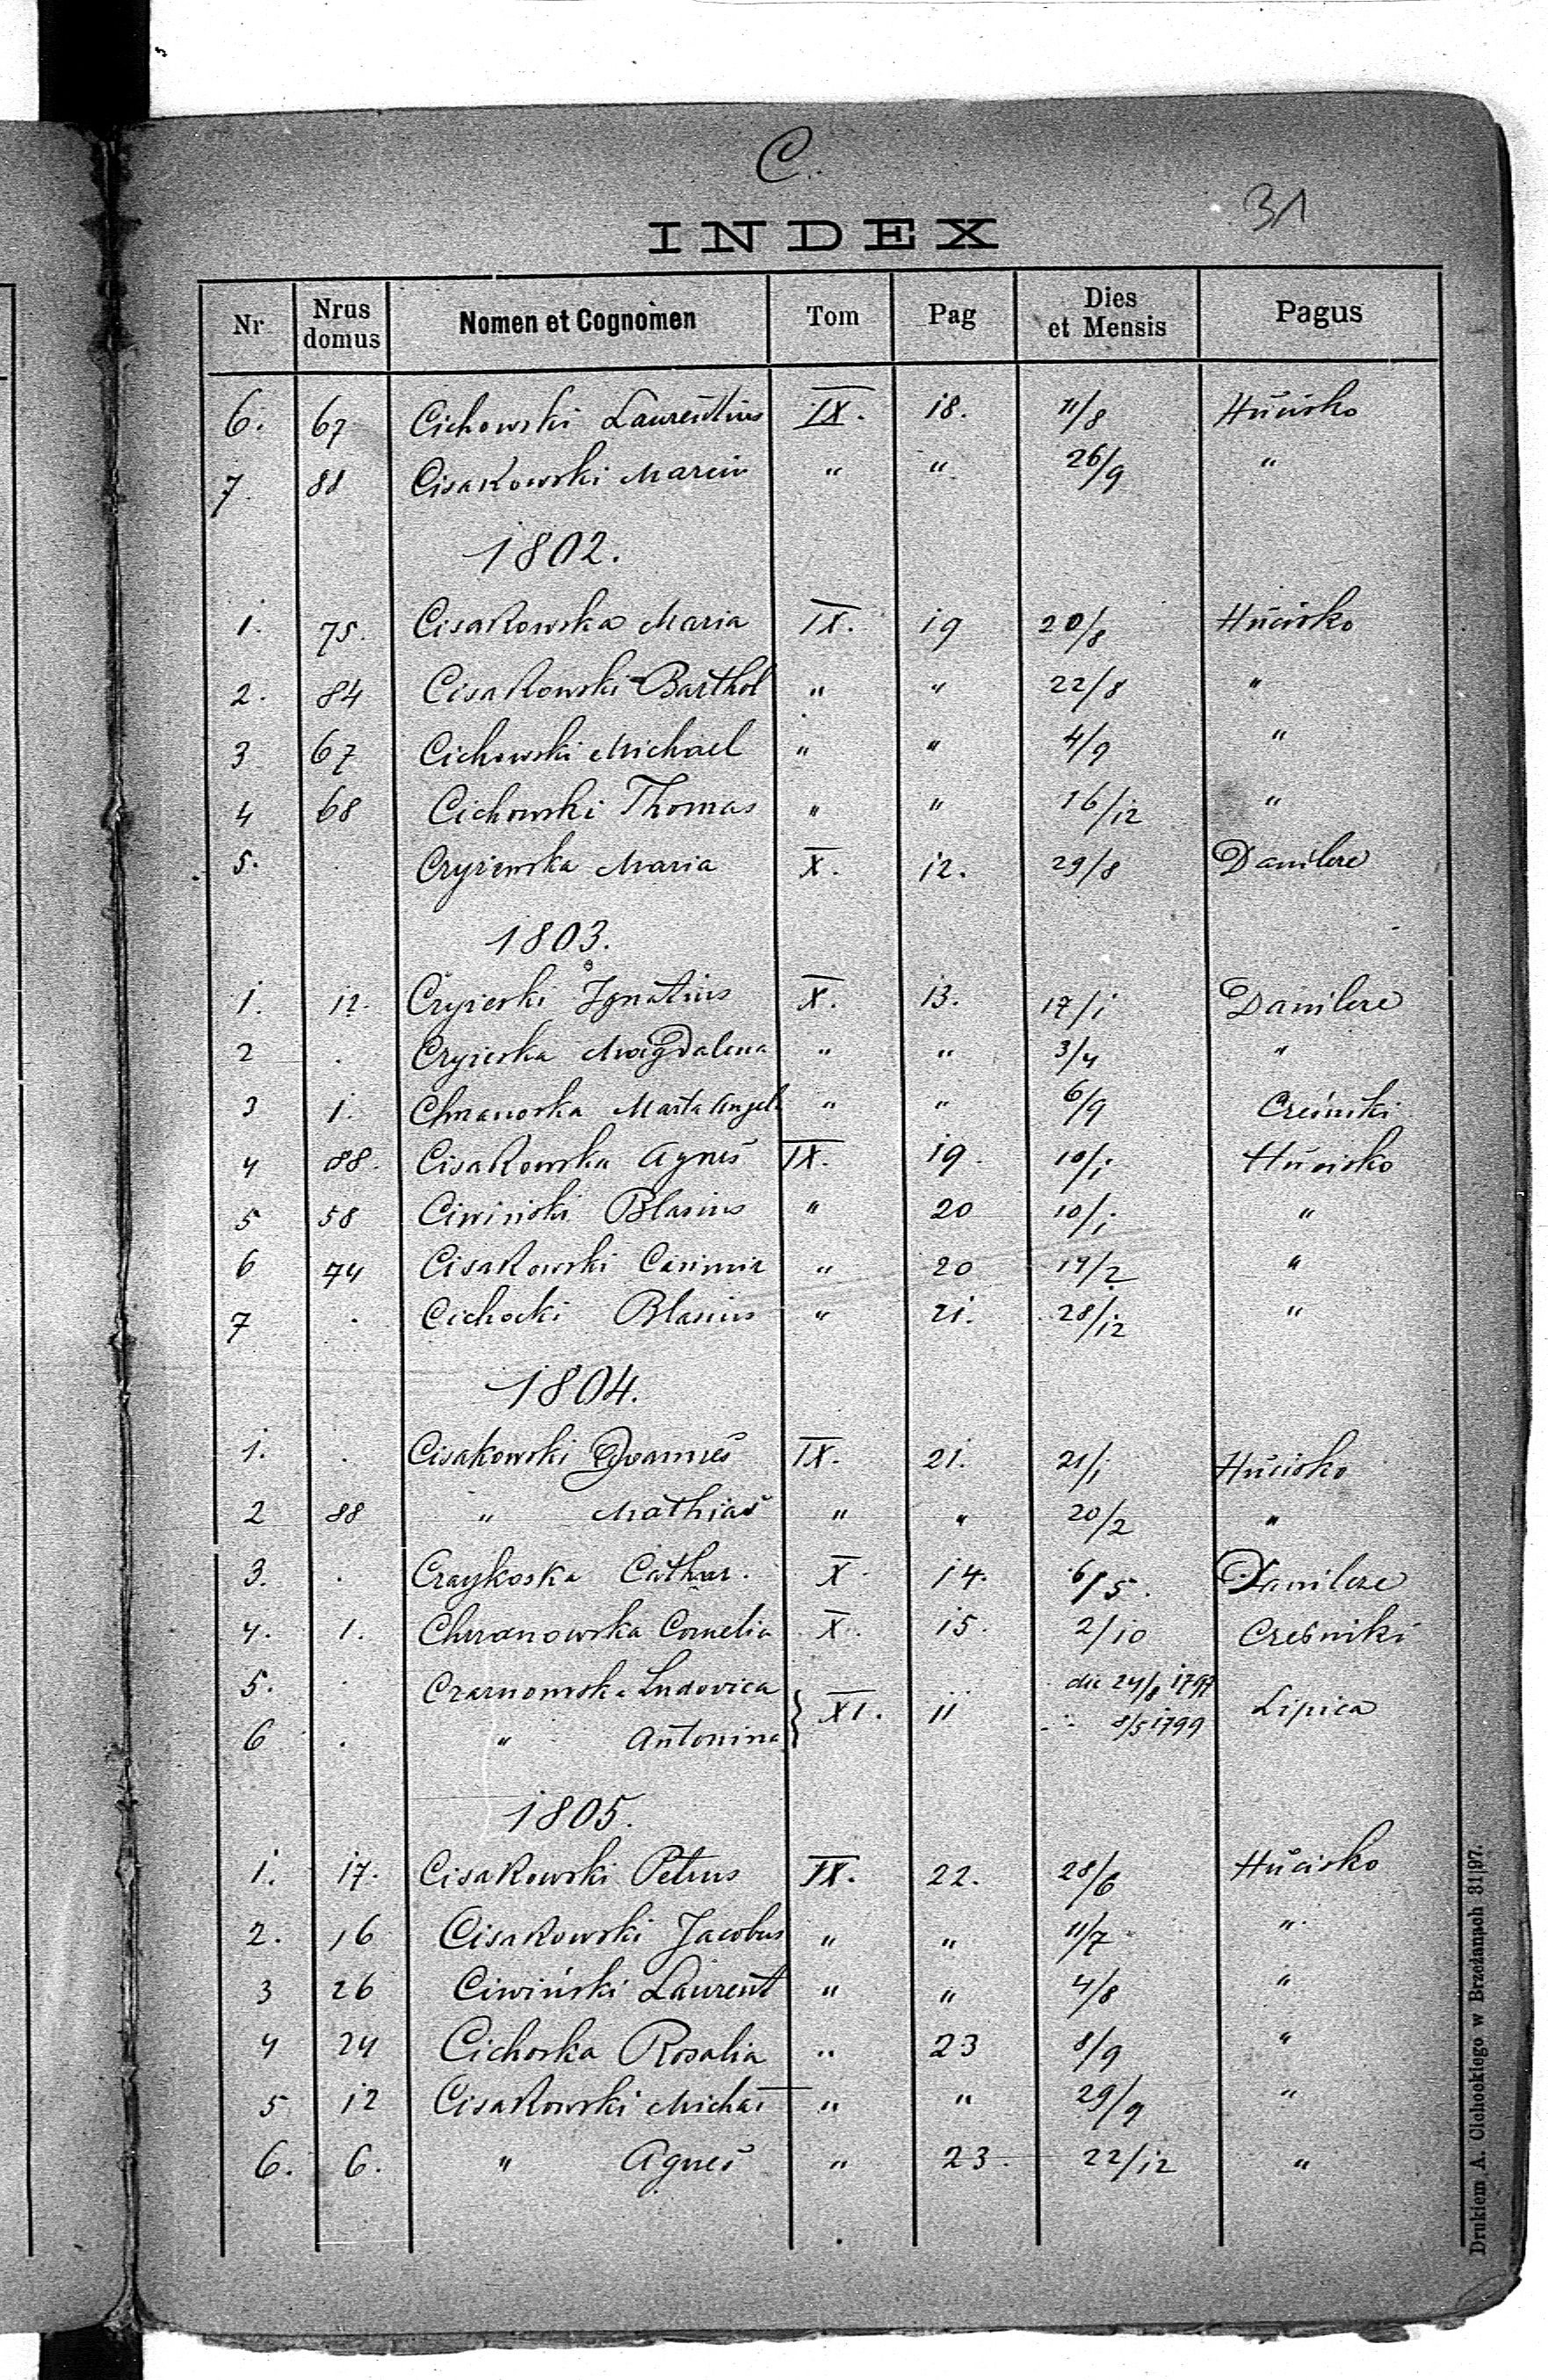 C.
31
INDEX
Nr Nrus domus Nomen et Cognomen Tom Pag Dies et Mensis Pagus
6. 67 Cichowski Laurentius IX. 18. 11/8 Hucisko
7. 88 Cisakowski Marcin " " 26/9 "
1802.
1. 75. Cisakowska Maria IX. 19 20/8 Hucisko
2. 84 Cisakowski Barthol " " 22/8 "
3 67 Cichowski Michael " " 4/9 "
4 68 Cichowski Thomas " " 16/12 "
5. . Czyżewska Maria X. 12. 29/8 Danilcze
1803.
1. 12. Czyżeski Ignatius X. 13. 17/1 Danilcze
2 . Czyżeska Magdalena " " 3/4 "
3 1. Chranoska Marta Angel " " 6/9 Cześniki
4 88. Cisakowska Agnes IX. 19. 10/1 Hucisko
5 58 Ciwiński Blasius " 20 10/1 "
6 74 Cisakowski Casimir " 20 19/2 "
7 . Cichocki Blasius " 21. 28/12 "
1804.
1. . Cisakowski Joannes IX. 21. 21/1 Hucisko
2 88 " Mathias " " 20/2 "
3. . Czaykoska Cathar. X. 14. 6/5. Danilcze
4. 1. Chrzanowska Cornelia X. 15. 2/10 Cześniki
5. . Czarnowska Ludovica XI. 11 die 24/8 1797 Lipica
6 . " Antonina " 8/5 1799
1805.
1. 17. Cisakowski Petrus IX. 22. 28/6 Hucisko
2. 16 Cisakowski Jacobus " " 11/7 "
3 26 Ciwiński Laurent " " 4/8 "
4 24 Cichoska Rosalia " 23 8/9 "
5 12 Cisakowski Michał " " 29/9 "
6. 6. " Agnes " 23. 22/12 "
Drukiem A. Cichockiego w Brzeżanach 31|97.